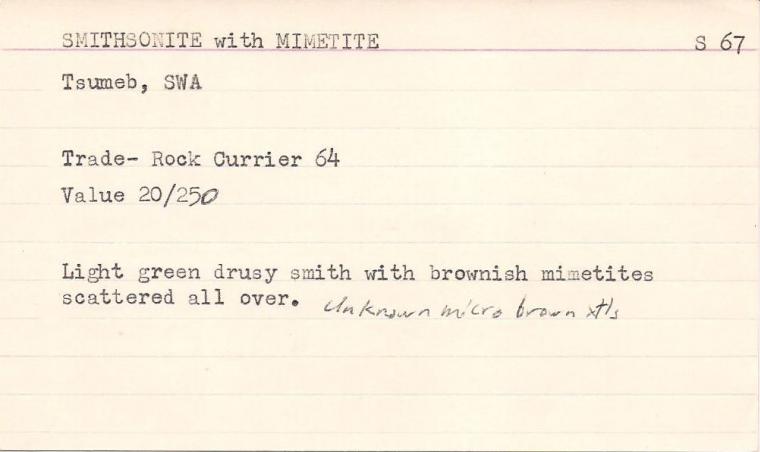 SMITHSONITE with MIMETITE S 67
Tsumeb, SWA
Trade- Rock Currier 64
Value 20/250
Light green drusy smith with brownish mimetites
scattered all over. Unknown micro brown xtls